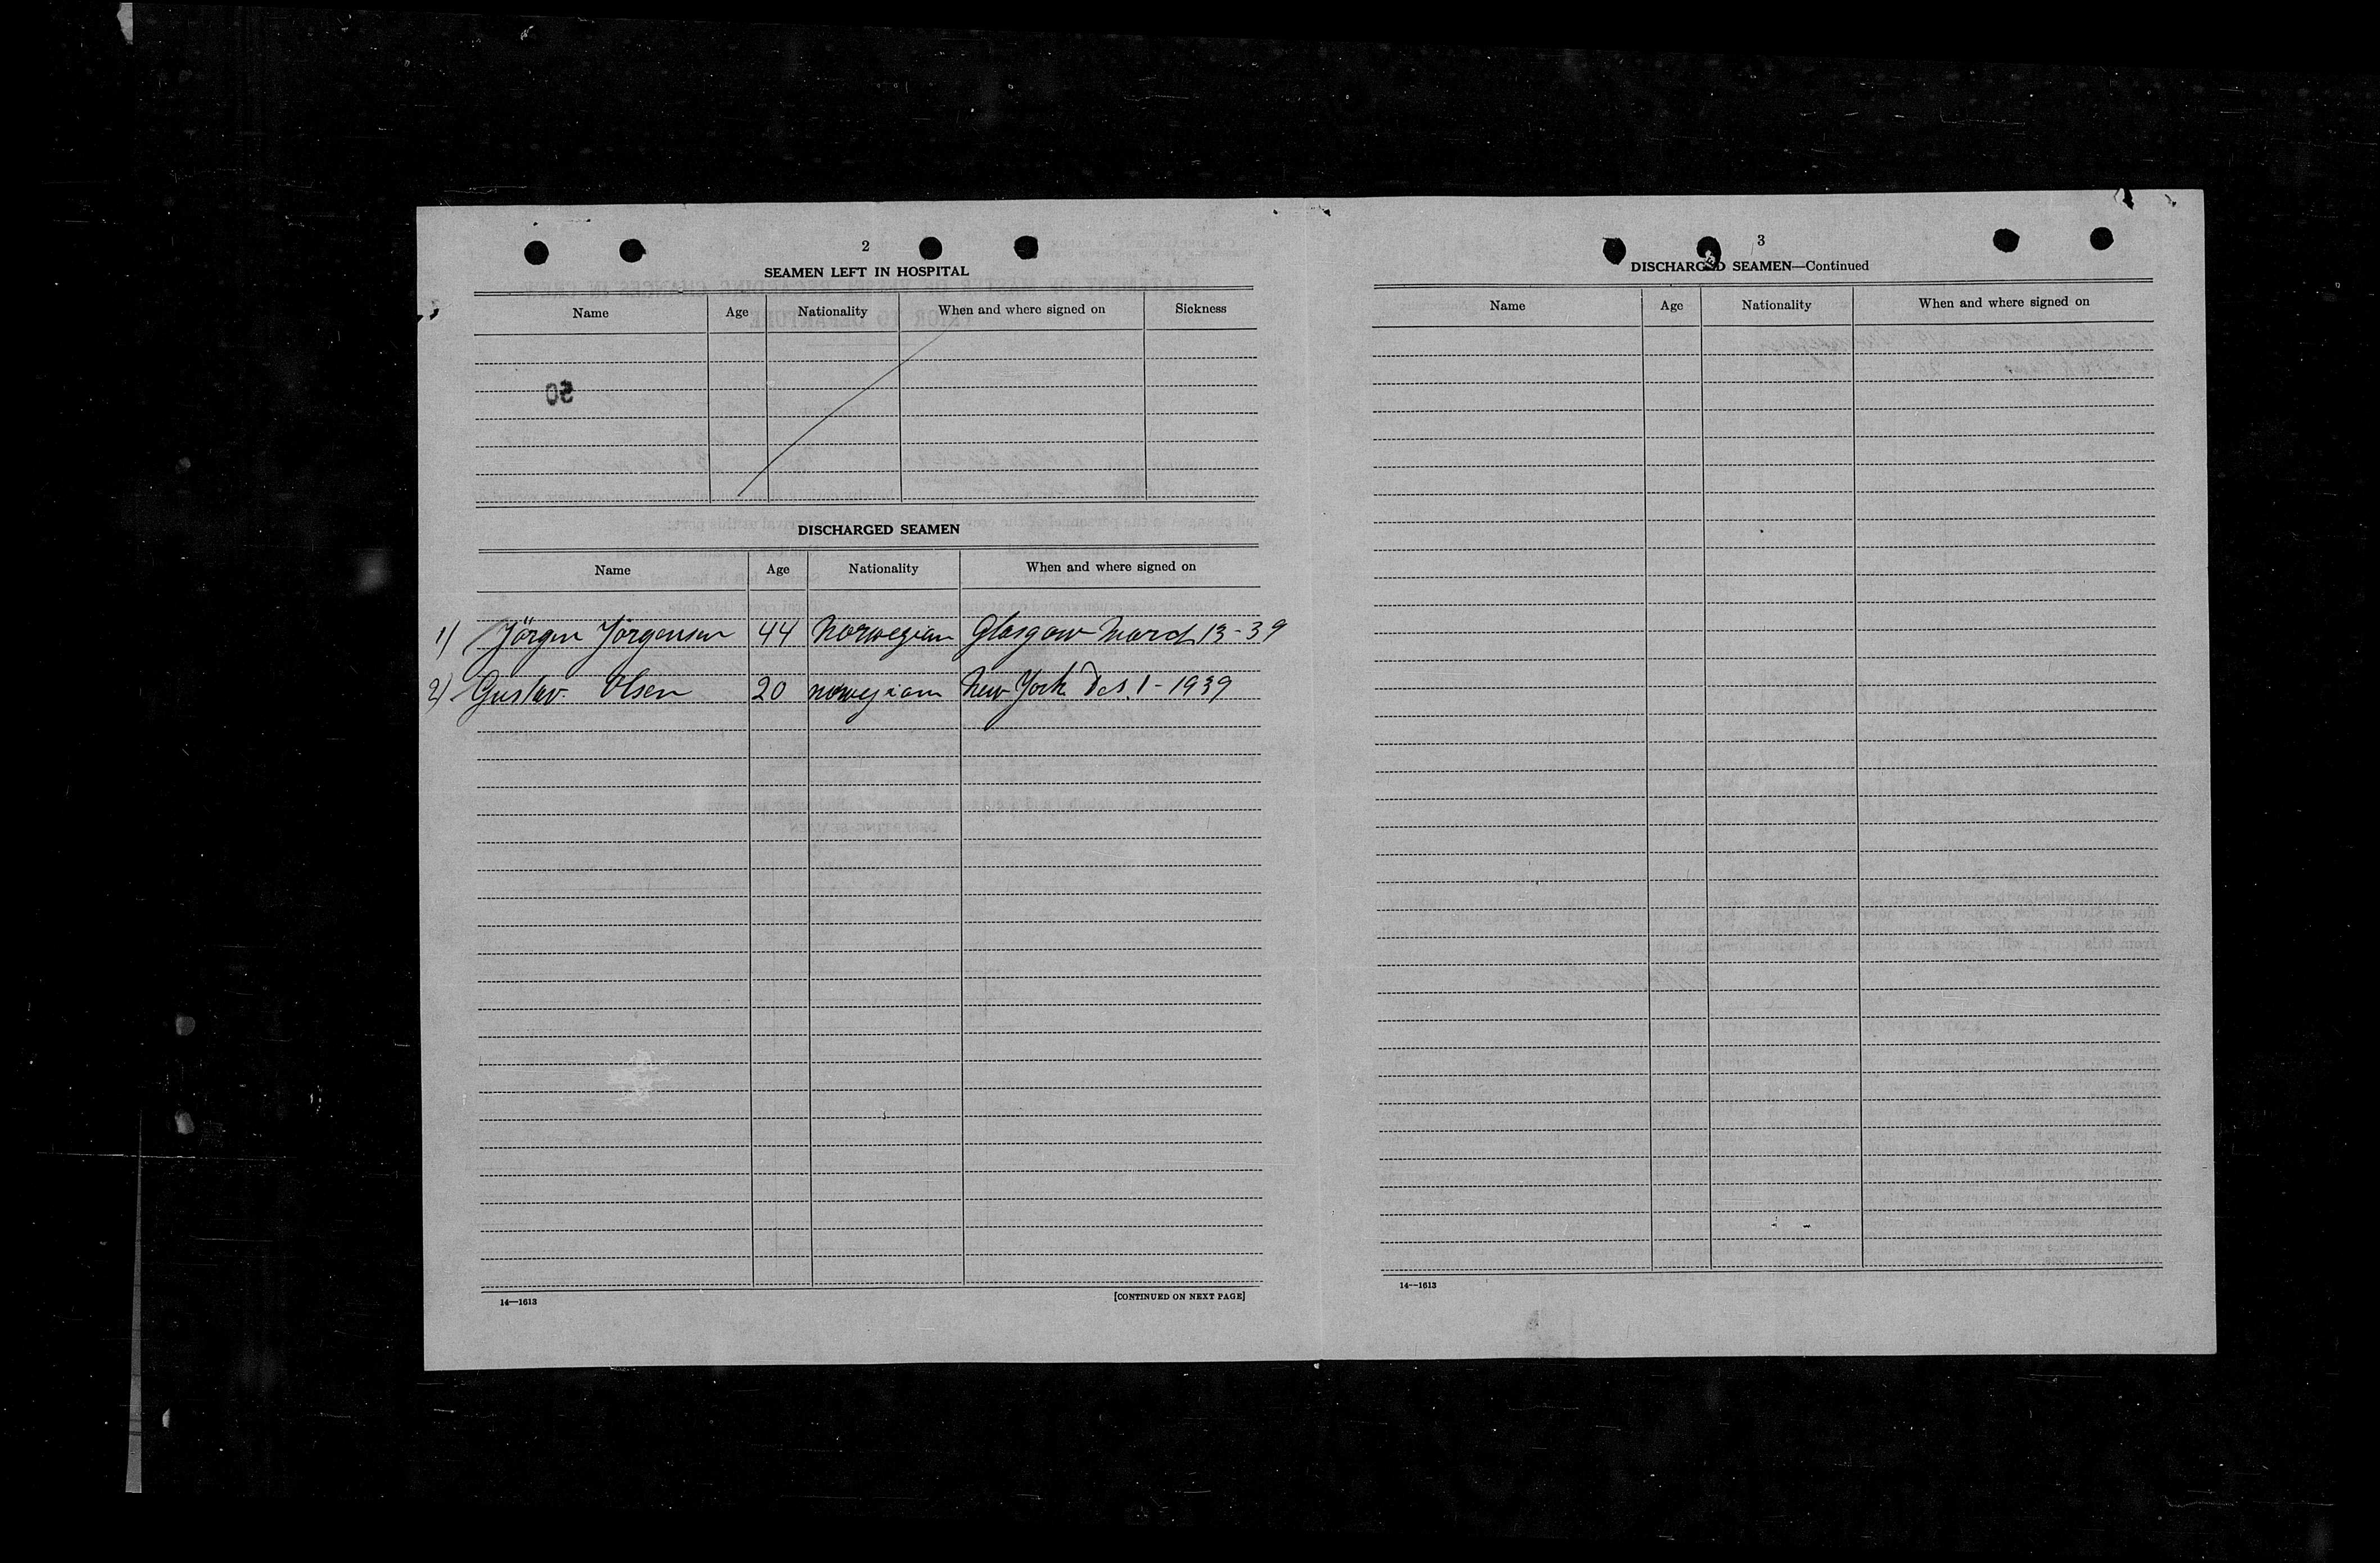 2
SEAMEN LEFT IN HOSPITAL
Name Age Nationality When and where signed on Sickness
50
DISCHARGED SEAMEN
Name Age Nationality When and where signed on
1) Jörgen Jörgensen 44 Norwegian Glasgow March 13-39
2) Gustav Olsen 20 norwegian New York 1-1939
14—1613 [CONTINUED ON NEXT PAGE]
3
DISCHARGED SEAMEN—Continued
Name Age Nationality When and where signed on
14—1613